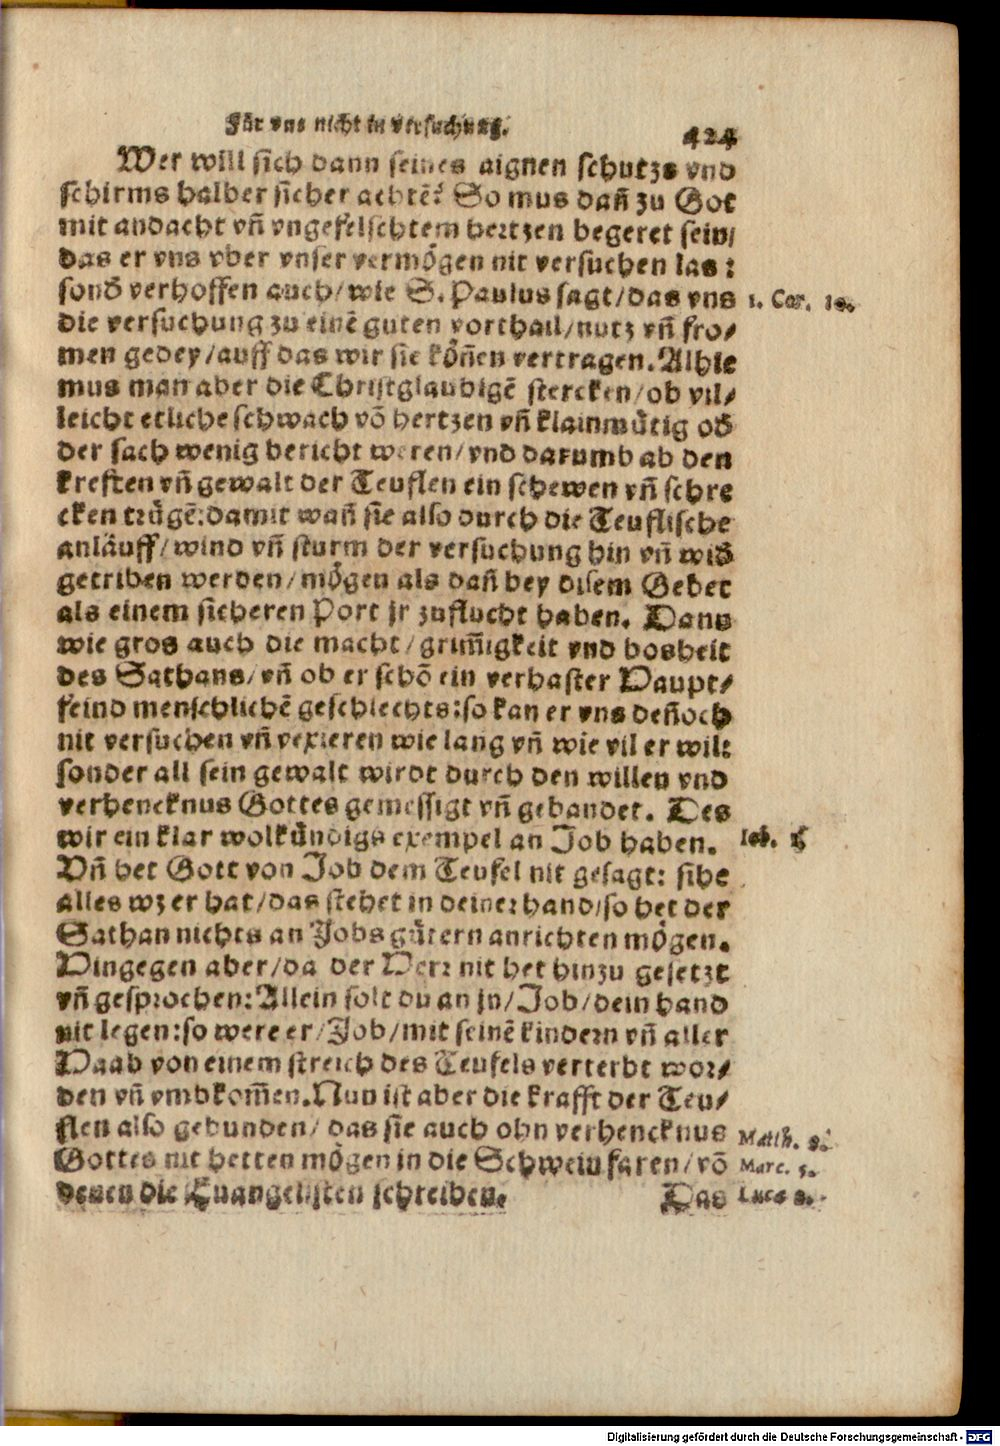 Für vns nicht in versuchung. 424
Wer will sich dann seines aignen schutzs vnd
schirms halber sicher achtẽ? So mus dañ zu Got
mit andacht vñ vngefelschtem hertzen begeret sein/
das er vns vber vnser vermögen nit versuchen las:
sond verhoffen auch/ wie S. Paulus sagt/ das vns 1. Cor. 10.
die versuchung zu einẽ guten vorthail/ nutz vñ fro/
men gedey/ auff das wir sie köñen vertragen. Alhie
mus man aber die Christglaubigẽ stercken/ ob vil/
leicht etliche schwach võ hertzen vñ klainmütig od
der sach wenig bericht weren/ vnd darumb ab den
kreften vñ gewalt der Teuflen ein schewen vñ schre
cken trügẽ: damit wañ sie also durch die Teuflische
anläuff/ wind vñ sturm der versuchung hin vñ wid
getriben werden/ mögen als dañ bey disem Gebet
als einem sicheren Port jr zuflucht haben. Dann
wie gros auch die macht/ grim̃igkeit vnd bosheit
des Sathans/ vñ ob er schõ ein verhaster Haupt/
feind menschlichẽ geschlechts: so kan er vns deñoch
nit versuchen vñ vexieren wie lang vñ wie vil er wil:
sonder all sein gewalt wirdt durch den willen vnd
verhencknus Gottes gemessigt vñ gebandet. Des
wir ein klar wolkündigs exempel an Job haben. Iob. 1
Vñ het Gott von Job dem Teufel nit gesagt: sihe
alles wz er hat/ das stehet in deiner hand/ so het der
Sathan nichts an Jobs gütern anrichten mögen.
Hingegen aber/ da der Herr nit het hinzu gesetzt
vñ gesprochen: Allein solt du an jn/ Job/ dein hand
nit legen: so were er/ Job/ mit seinẽ kindern vñ aller
Haab von einem streich des Teufels verterbt wor/
den vñ vmbkom̃en. Nun ist aber die krafft der Teu/
flen also gebunden/ das sie auch ohn verhencknus Matth. 8.
Gottes nit hetten mögen in die Schwein faren/ võ Marc. 5.
denen die Euangelisten schreiben. Das Lucæ 8.
Digitalisierung gefördert durch die Deutsche Forschungsgemeinschaft - DFG